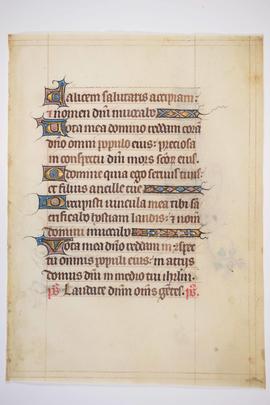 Calicem salutaris accipiam:
et nomen dñi invocabo
Vota mea domino reddam corã
dño omni populo eius: preciosa
in conspectu dñi mors scõr eius.
O domine quia ego servus tuus:
et filius ancille tue
Dirupisti vincula mea tibi sa
crificabo hostiam laudis: et nomẽ
domini invocabo
Vota mea dño reddam in cõspec
tu omnis populi eius: in atrijs
domus dñi in medio tui ihrlm.
ps Laudate dñm oms gẽtes. ps